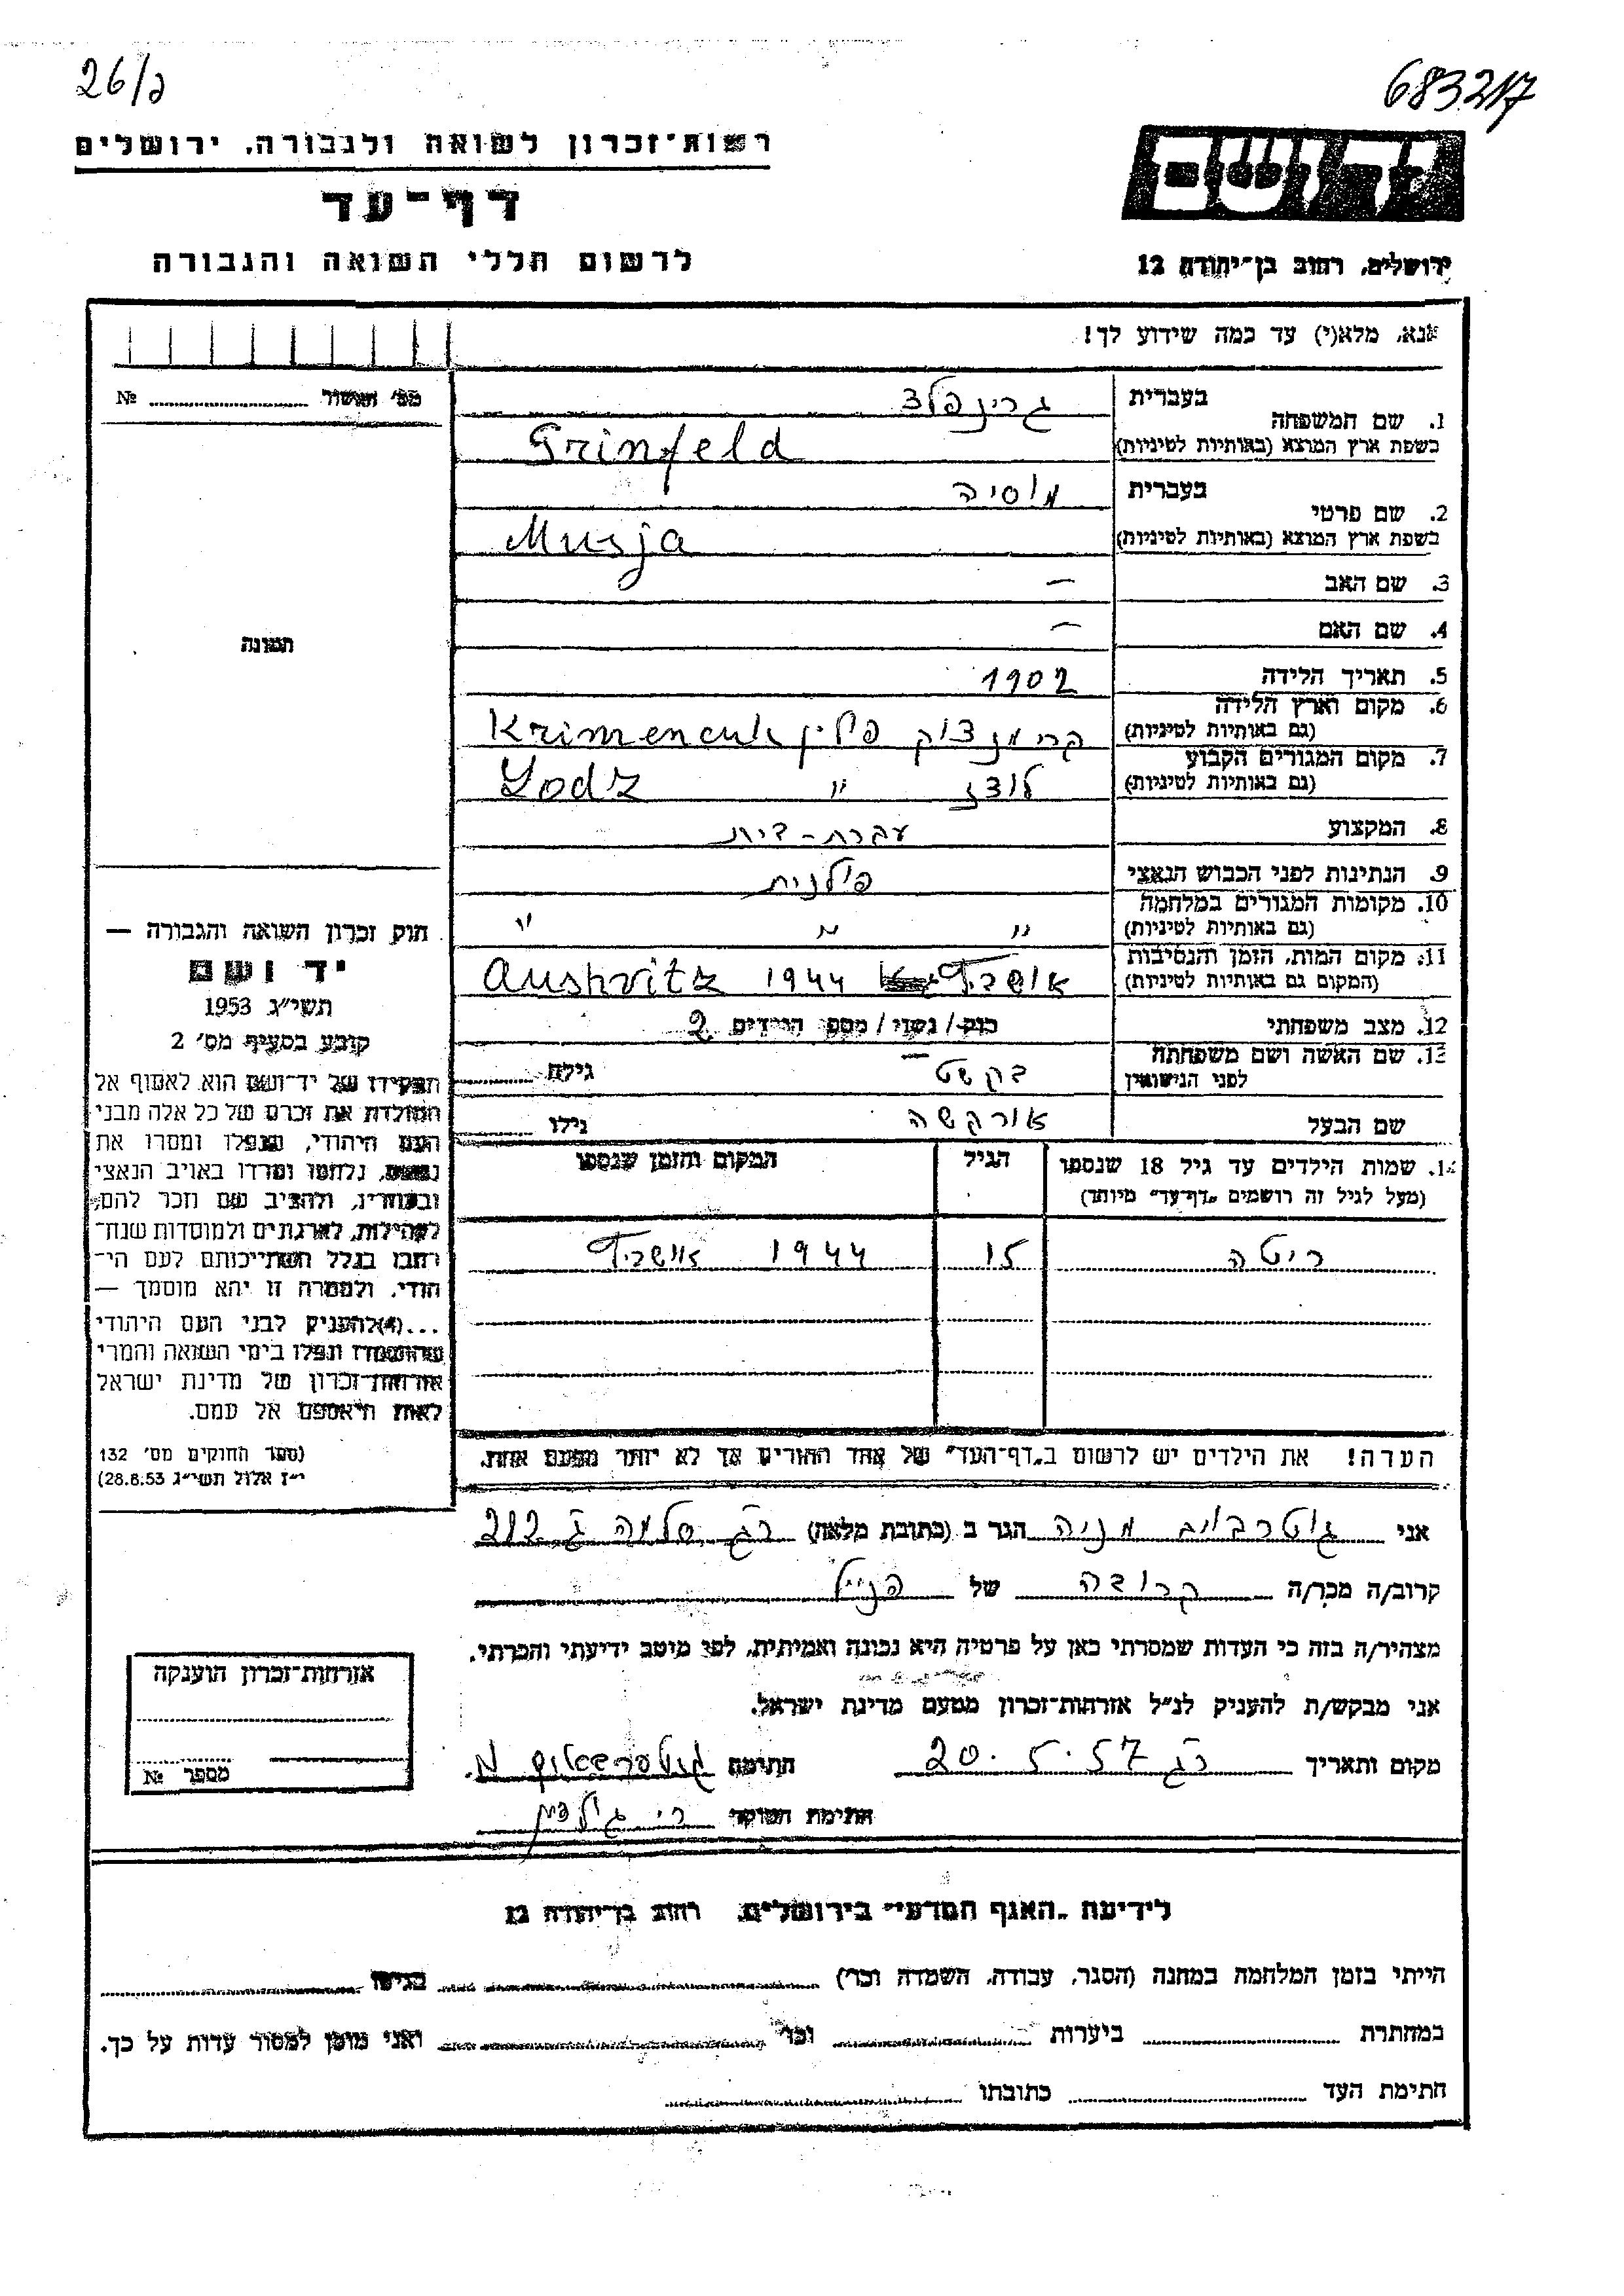 26/ג
683217
רשות־זכרון לשואה ולגבורה, ירושלים
דף־עד
לרשום חללי השואה והגבורה
יד ושם
ירושלים, רחוב בן־יהודה 12
אנא, מלא(י) עד כמה שידוע לך!
מס' האשור № 
1. שם המשפחה
בעברית גרינפלד
בשפת ארץ המוצא (באותיות לטיניות) Grinfeld
2. שם פרטי
בעברית מוסיה
בשפת ארץ המוצא (באותיות לטיניות) Musja
3. שם האב —
4. שם האם —
תמונה
5. תאריך הלידה 1902
6. מקום וארץ הלידה
(גם באותיות לטיניות) קרימנצוק פולין Krimencuk
7. מקום המגורים הקבוע
(גם באותיות לטיניות) לודז " Lodz
8. המקצוע עקרת-בית
9. הנתינות לפני הכבוש הנאצי פולנית
10. מקומות המגורים במלחמה
(גם באותיות לטיניות) " " "
11. מקום המות, הזמן והנסיבות
(המקום גם באותיות לטיניות) אושביץ 1944 Aushvitz
12. מצב משפחתי רווק/נשוי/מספר הילדים 2
13. שם האשה ושם משפחתה
לפני הנישואין גילה
שם הבעל גילו
14. שמות הילדים עד גיל 18 שנספו
(מעל לגיל זה רושמים „דף־עד" מיוחד)
הגיל
המקום והזמן שנספו
ריטה 15 1944 אושביץ
הערה! את הילדים יש לרשום ב„דף־העד" של אחד ההורים אך לא יותר מפעם אחת.
חוק זכרון השואה והגבורה —
יד ושם
תשי"ג 1953
קובע בסעיף מס' 2
תפקידו של יד־ושם הוא לאסוף אל
המולדת את זכרם של כל אלה מבני
העם היהודי, שנפלו ומסרו את
נפשם, נלחמו ומרדו באויב הנאצי
ובעוזריו, ולהציב שם וזכר להם,
לקהילות, לארגונים ולמוסדות שנח־
רבו בגלל השתייכותם לעם הי־
הודי, ולמטרה זו יהא מוסמך —
...(4) להעניק לבני העם היהודי
שהושמדו ונפלו בימי השואה והמרי
אזרחות־זכרון של מדינת ישראל
לאות היאספם אל עמם.
(ספר החוקים מס' 132
י"ז אלול תשי"ג 28.8.53)
אני גוטרבוים מניה הגר ב (כתובת מלאה) רג סלמה ג 212
קרוב/ה מכר/ה קרובה של הנ"ל
מצהיר/ה בזה כי העדות שמסרתי כאן על פרטיה היא נכונה ואמיתית, לפי מיטב ידיעתי והכרתי.
אני מבקש/ת להעניק לנ"ל אזרחות־זכרון מטעם מדינת ישראל.
מקום ותאריך רג 20.5.57 חתימה
חתימת הפוקד
אזרחות־זכרון הוענקה
מספר №
לידיעת „האגף המדעי" בירושלים, רחוב בן־יהודה 12
הייתי בזמן המלחמה במחנה (הסגר, עבודה, השמדה וכו') בגיטו
במחתרת ביערות וכו' ואני מוכן למסור עדות על כך.
חתימת העד כתובתו